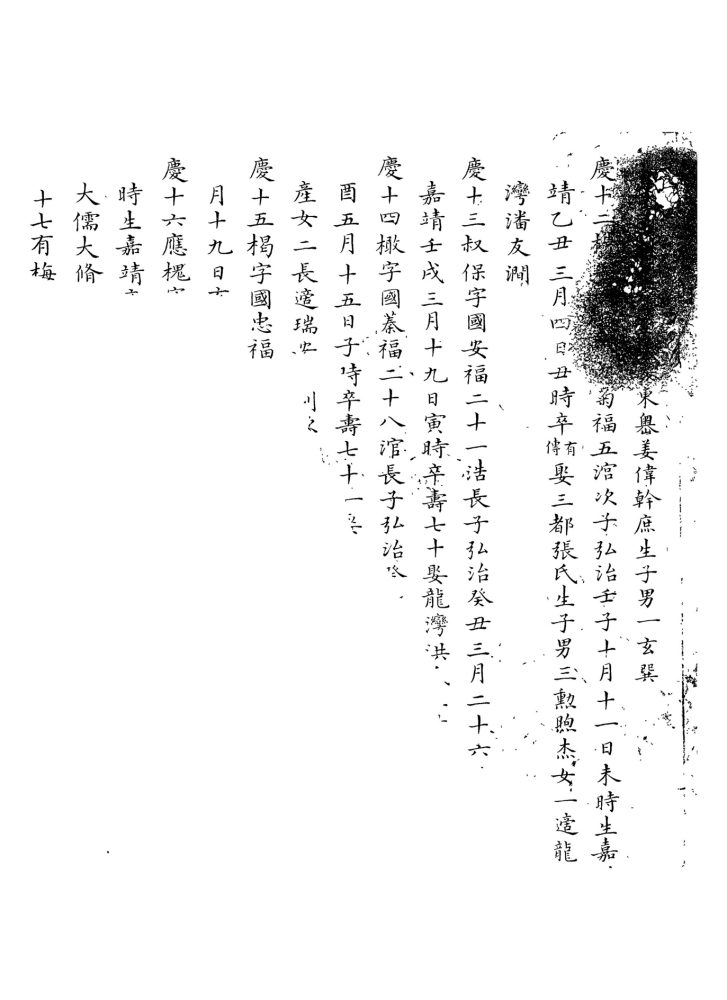 東嶴姜偉幹庶生子男一玄巽
慶十二 菊福五涫次子弘治壬子十月十一日未時生嘉
靖乙丑三月四日丑時卒有傳娶三都張氏生子男三勲煦杰女一適龍
灣潘友澗
慶十三叔保字國安福二十一浩長子弘治癸丑三月二十六
嘉靖壬戌三月十九日寅時卒壽七十娶龍灣洪
慶十四橄字國綦福二十八涫長子弘治
酉五月十五日子時卒壽七十一
産女二長適瑞
慶十五楬字國忠福
月十九日
慶十六應槐
時生嘉靖
大儒大脩
十七有梅